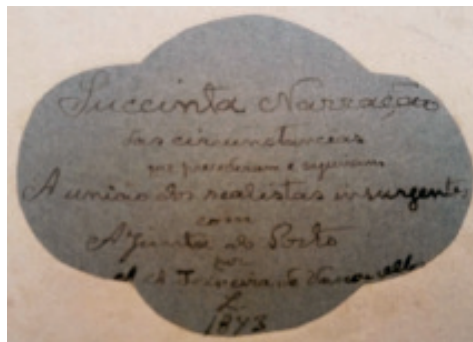 Succinta Narração
das circunstancias
que precederam e seguiram
A união dos realistas insurgentes
com
A Junta do Porto
por
A A Teixeira de Vasconcellos
L.
1873